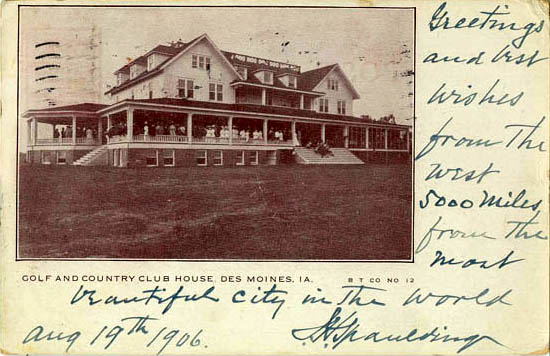 Greetings
and best
wishes
from the
west
5000 Miles
from the
most
GOLF AND COUNTRY CLUB HOUSE, DES MOINES, IA. B T CO NO 12
beautiful city in the world
Aug 19th 1906. Spaulding